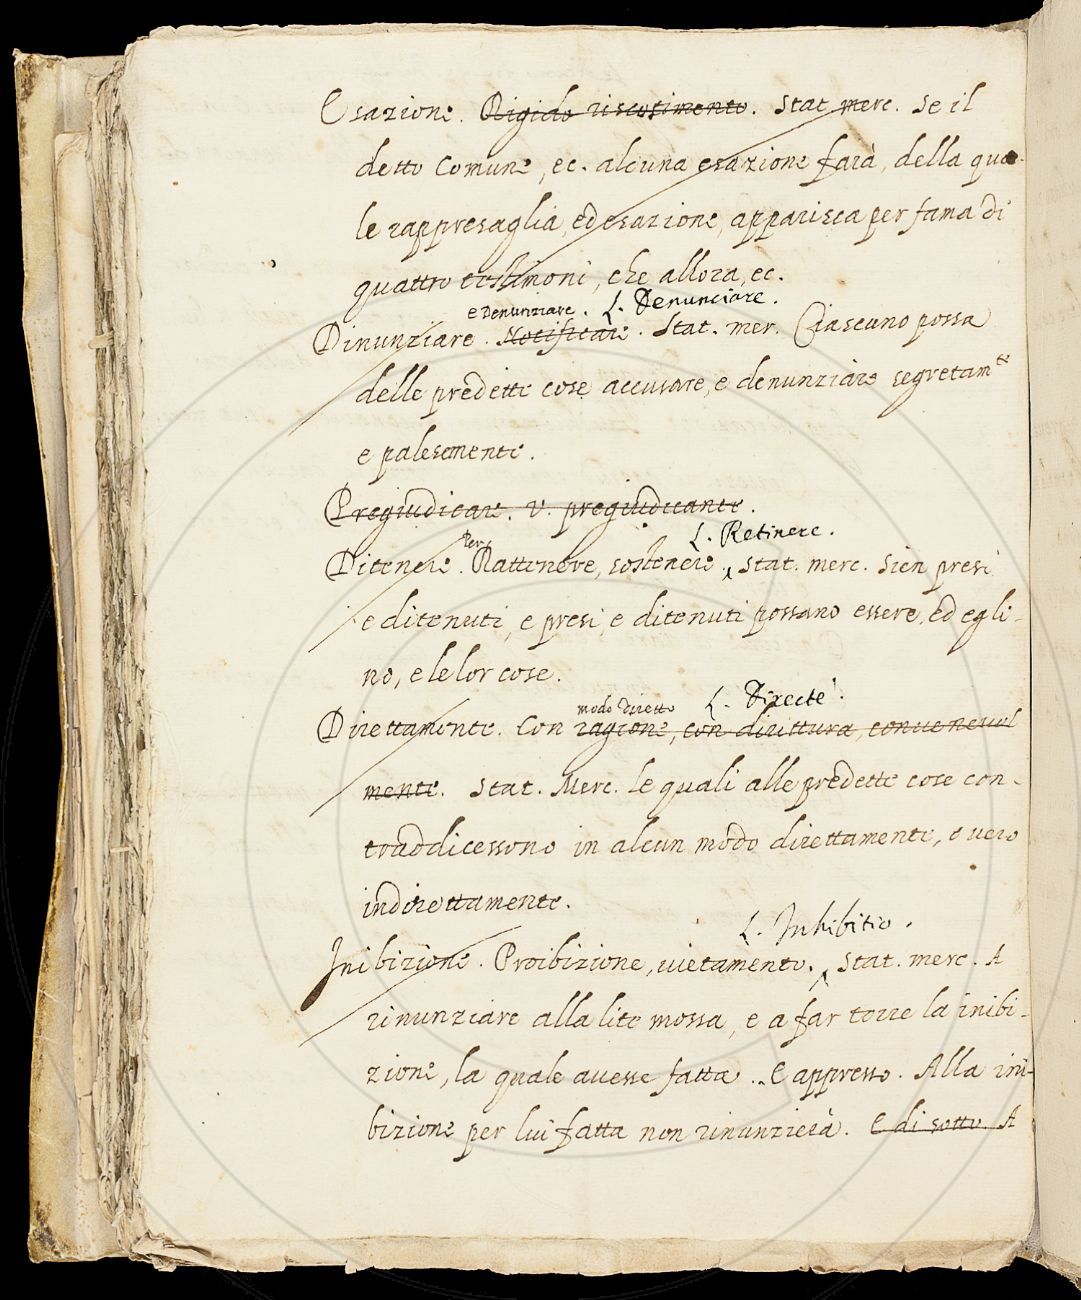 Esazione. Rigido riscotimento. Stat. merc. Se il
detto Comune, ec. alcuna esazione farà, della qua-
le rappresaglia, ed esazione, apparisca per fama di
quattro testimoni, che allora, ec.
e Denunziare. L. Denunciare.
Dinunziare. Notificare. Stat. mer. Ciascuno possa
delle predette cose accusare, e denunziare segretamte
e palesemente.
Pregiudicare. v. pregiudicante.
Per L. Retinere.
Ditenere. Rattenere, sostenere. Stat. merc. Sien presi
e ditenuti, e presi, e ditenuti possano essere, ed egli-
no, e le lor cose.
modo diretto L. Directe.
Direttamente. Con ragione, con dirittura, convenevol
mente. Stat. Merc. le quali alle predette cose con-
traddicessono in alcun modo direttamente, o vero
indirettamente.
L. Inhibitio.
Inibizione. Proibizione, vietamento. Stat. merc. A
rinunziare alla lite mossa, e a far torre la inibi-
zione, la quale avesse fatta.. E appresso. Alla ini-
bizione per lui fatta non rinunzierà. E di sotto A